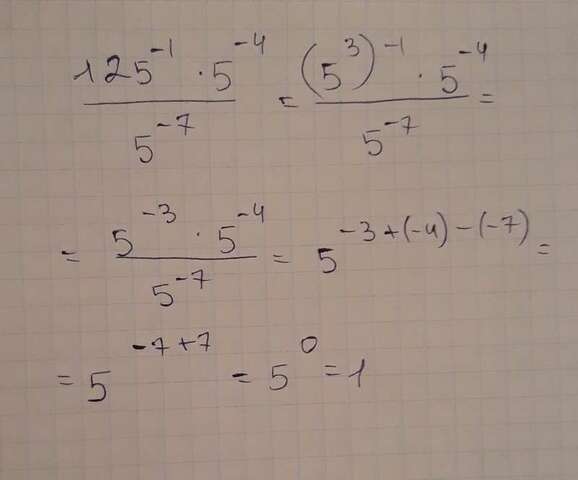 125⁻¹ · 5⁻⁴ / 5⁻⁷ = (5³)⁻¹ · 5⁻⁴ / 5⁻⁷ =
= 5⁻³ · 5⁻⁴ / 5⁻⁷ = 5⁻³⁺⁽⁻⁴⁾⁻⁽⁻⁷⁾ =
= 5⁻⁷⁺⁷ = 5⁰ = 1